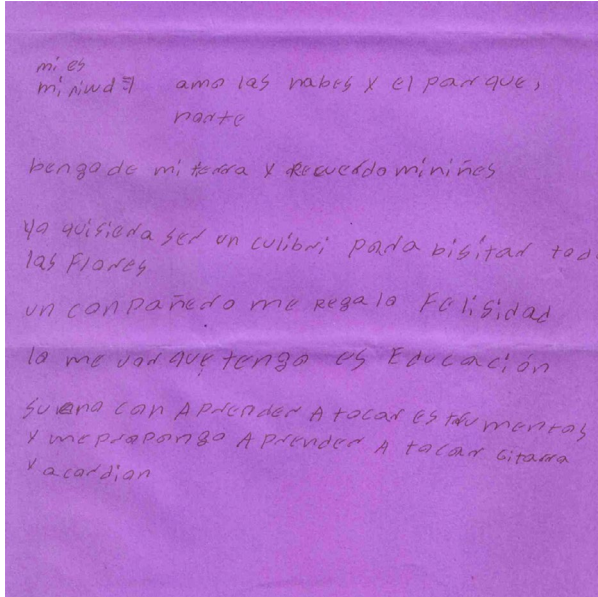 mi es
amo las nabes y el parque,
norte
bengo de mi terra y Recuerdo mi niñes
yo quisiera ser un culibri para bisitar tod
las Flores
un conpañero me Regala Felisidad
lo me jor que tengo es Educación
sueno con Aprender A tocar estrumentos
y me propongo Aprender A tocar Gitarra
y acordian